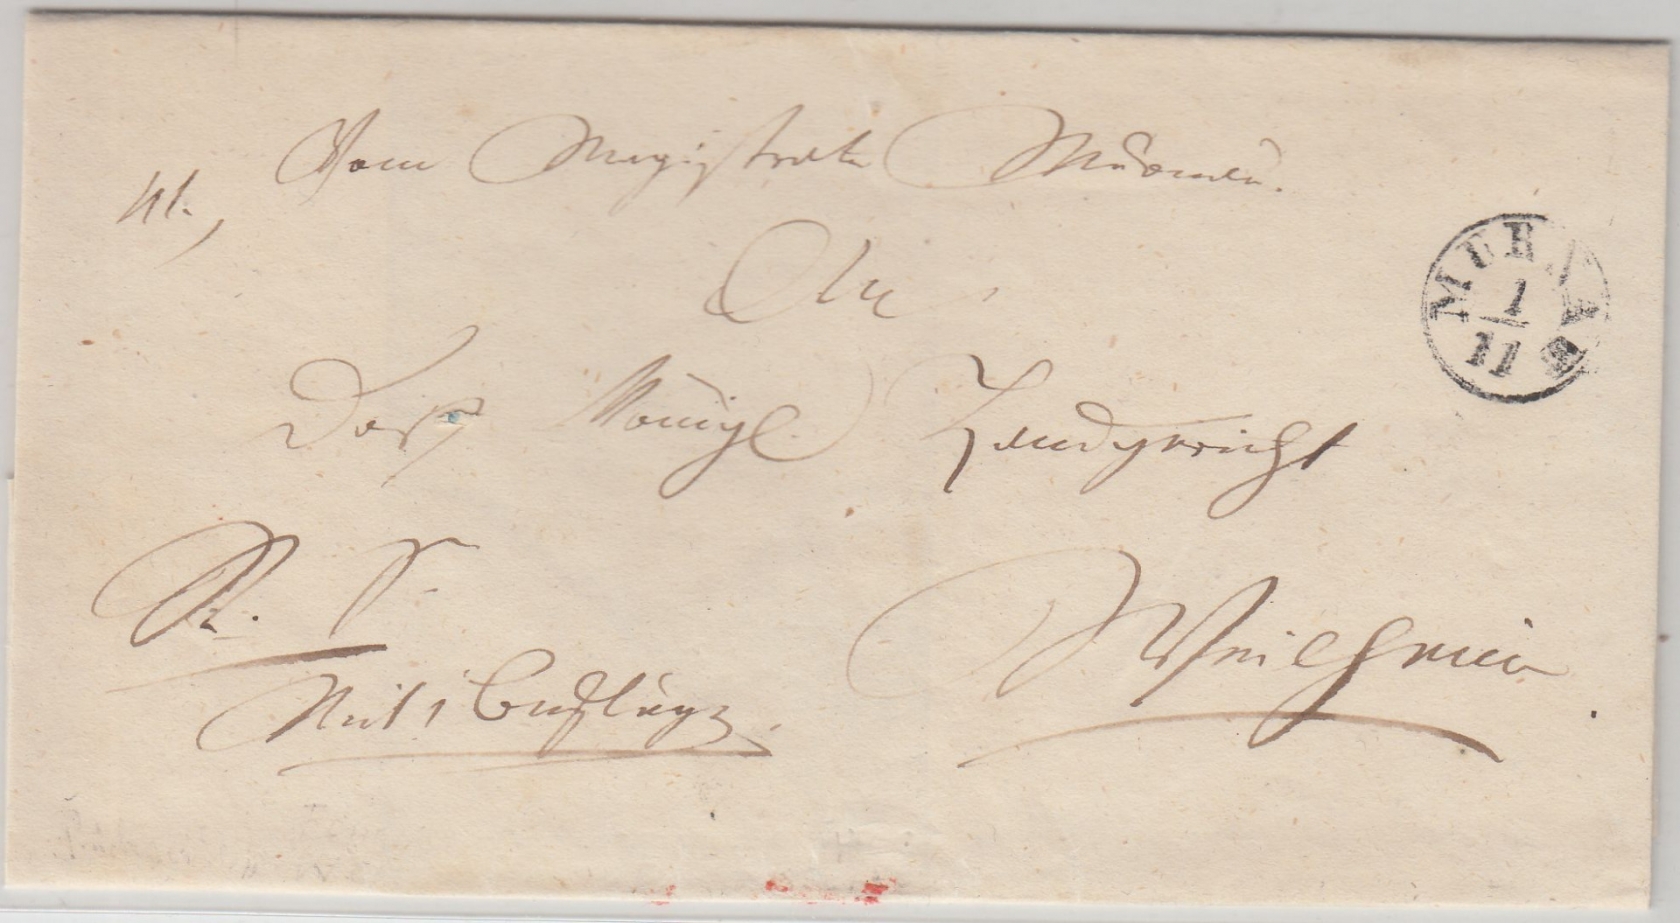 Vom Magistrate Murnau.
An
Das Königl Landgericht
R. S.
Weilheim
Mit 1 Beschlage
MURNAU
1
11